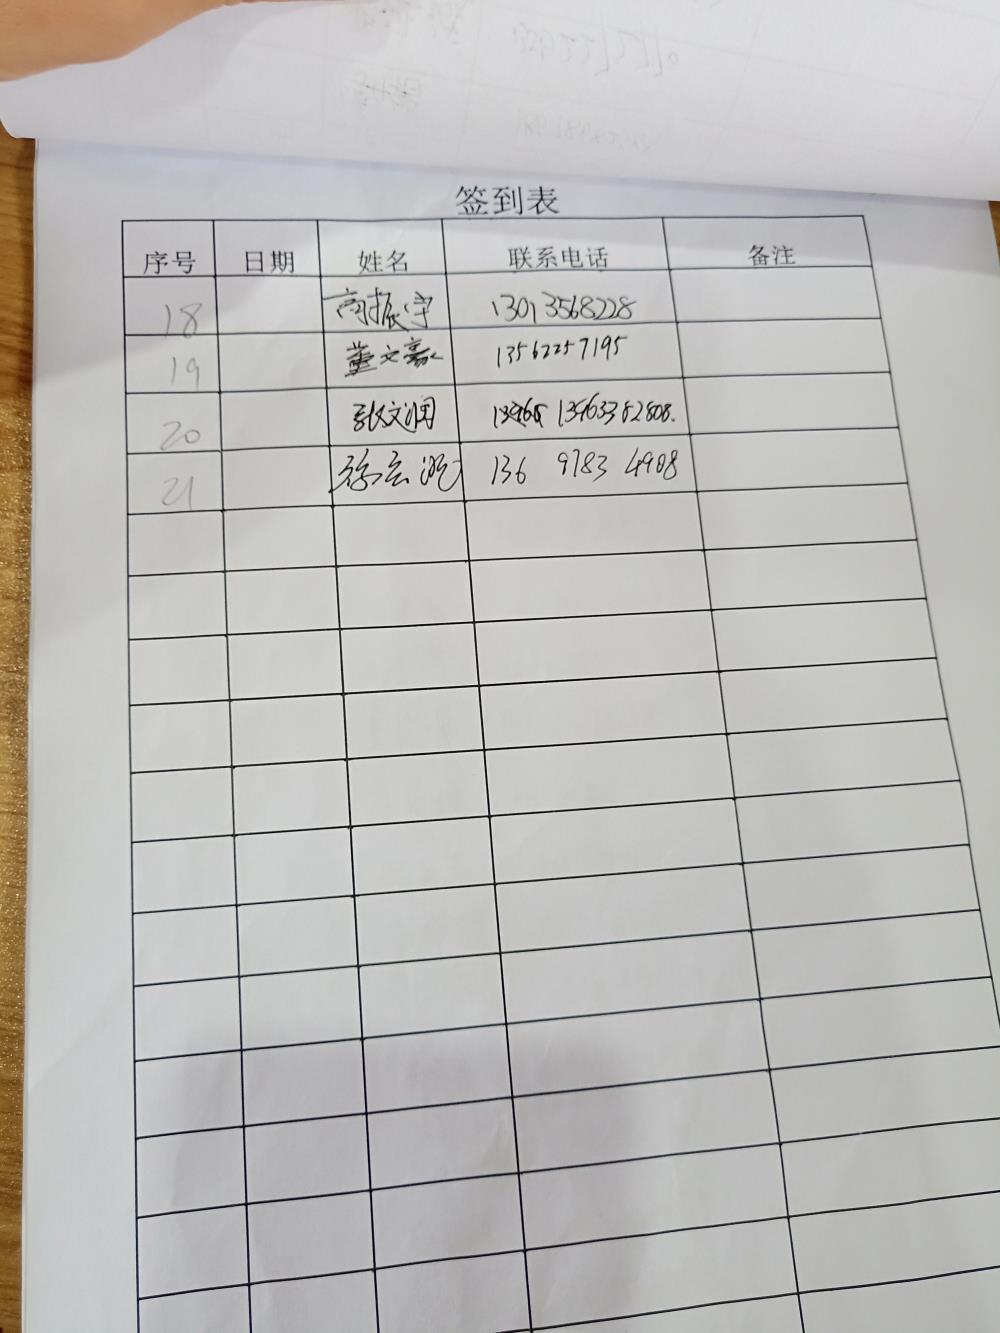 签到表
序号 日期 姓名 联系电话 备注
18 高振宇 13013568228
19 董文豪 13562257195
20 张文润 13963382808.
21 徐宏 136 9783 4908